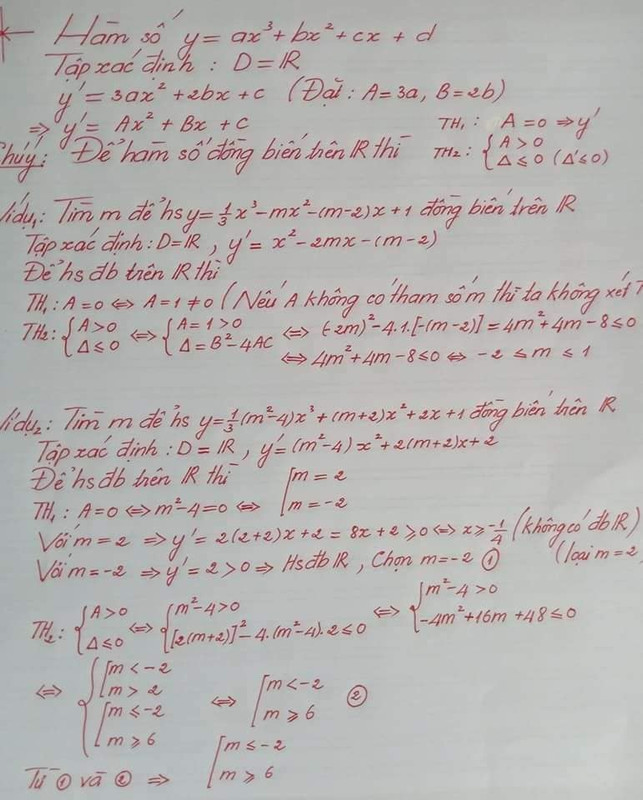 Hàm số y = ax³ + bx² + cx + d
Tập xác định : D = ℝ
y' = 3ax² + 2bx + c (Đặt : A = 3a, B = 2b)
⇒ y' = Ax² + Bx + c TH₁ : A = 0 ⇒ y'
Chú ý : Để hàm số đồng biến trên ℝ thì TH₂ : { A > 0 ; Δ ≤ 0 (Δ' ≤ 0)
Ví dụ₁ : Tìm m để hs y = 1/3 x³ - mx² - (m-2)x + 1 đồng biến trên ℝ
Tập xác định : D = ℝ , y' = x² - 2mx - (m-2)
Để hs đb trên ℝ thì
TH₁ : A = 0 ⇔ A = 1 ≠ 0 (Nếu A không có tham số m thì ta không xét T
TH₂ : { A > 0 ; Δ ≤ 0 ⇔ { A = 1 > 0 ; Δ = B² - 4AC ⇔ (-2m)² - 4.1.[-(m-2)] = 4m² + 4m - 8 ≤ 0
⇔ 4m² + 4m - 8 ≤ 0 ⇔ -2 ≤ m ≤ 1
Ví dụ₂ : Tìm m để hs y = 1/3 (m²-4)x³ + (m+2)x² + 2x + 1 đồng biến trên ℝ
Tập xác định : D = ℝ , y' = (m²-4)x² + 2(m+2)x + 2
Để hs đb trên ℝ thì
TH₁ : A = 0 ⇔ m² - 4 = 0 ⇔ [ m = 2 ; m = -2
Với m = 2 ⇒ y' = 2(2+2)x + 2 = 8x + 2 ≥ 0 ⇔ x ≥ -1/4 (không có đb ℝ)
(loại m = 2
Với m = -2 ⇒ y' = 2 > 0 ⇒ Hs đb ℝ , Chọn m = -2 ①
TH₂ : { A > 0 ; Δ ≤ 0 ⇔ { m² - 4 > 0 ; [2(m+2)]² - 4.(m²-4).2 ≤ 0 ⇔ { m² - 4 > 0 ; -4m² + 16m + 48 ≤ 0
⇔ { [ m < -2 ; m > 2 ; [ m ≤ -2 ; m ≥ 6 ⇔ [ m < -2 ; m ≥ 6 ②
Từ ① và ② ⇒ [ m ≤ -2 ; m ≥ 6